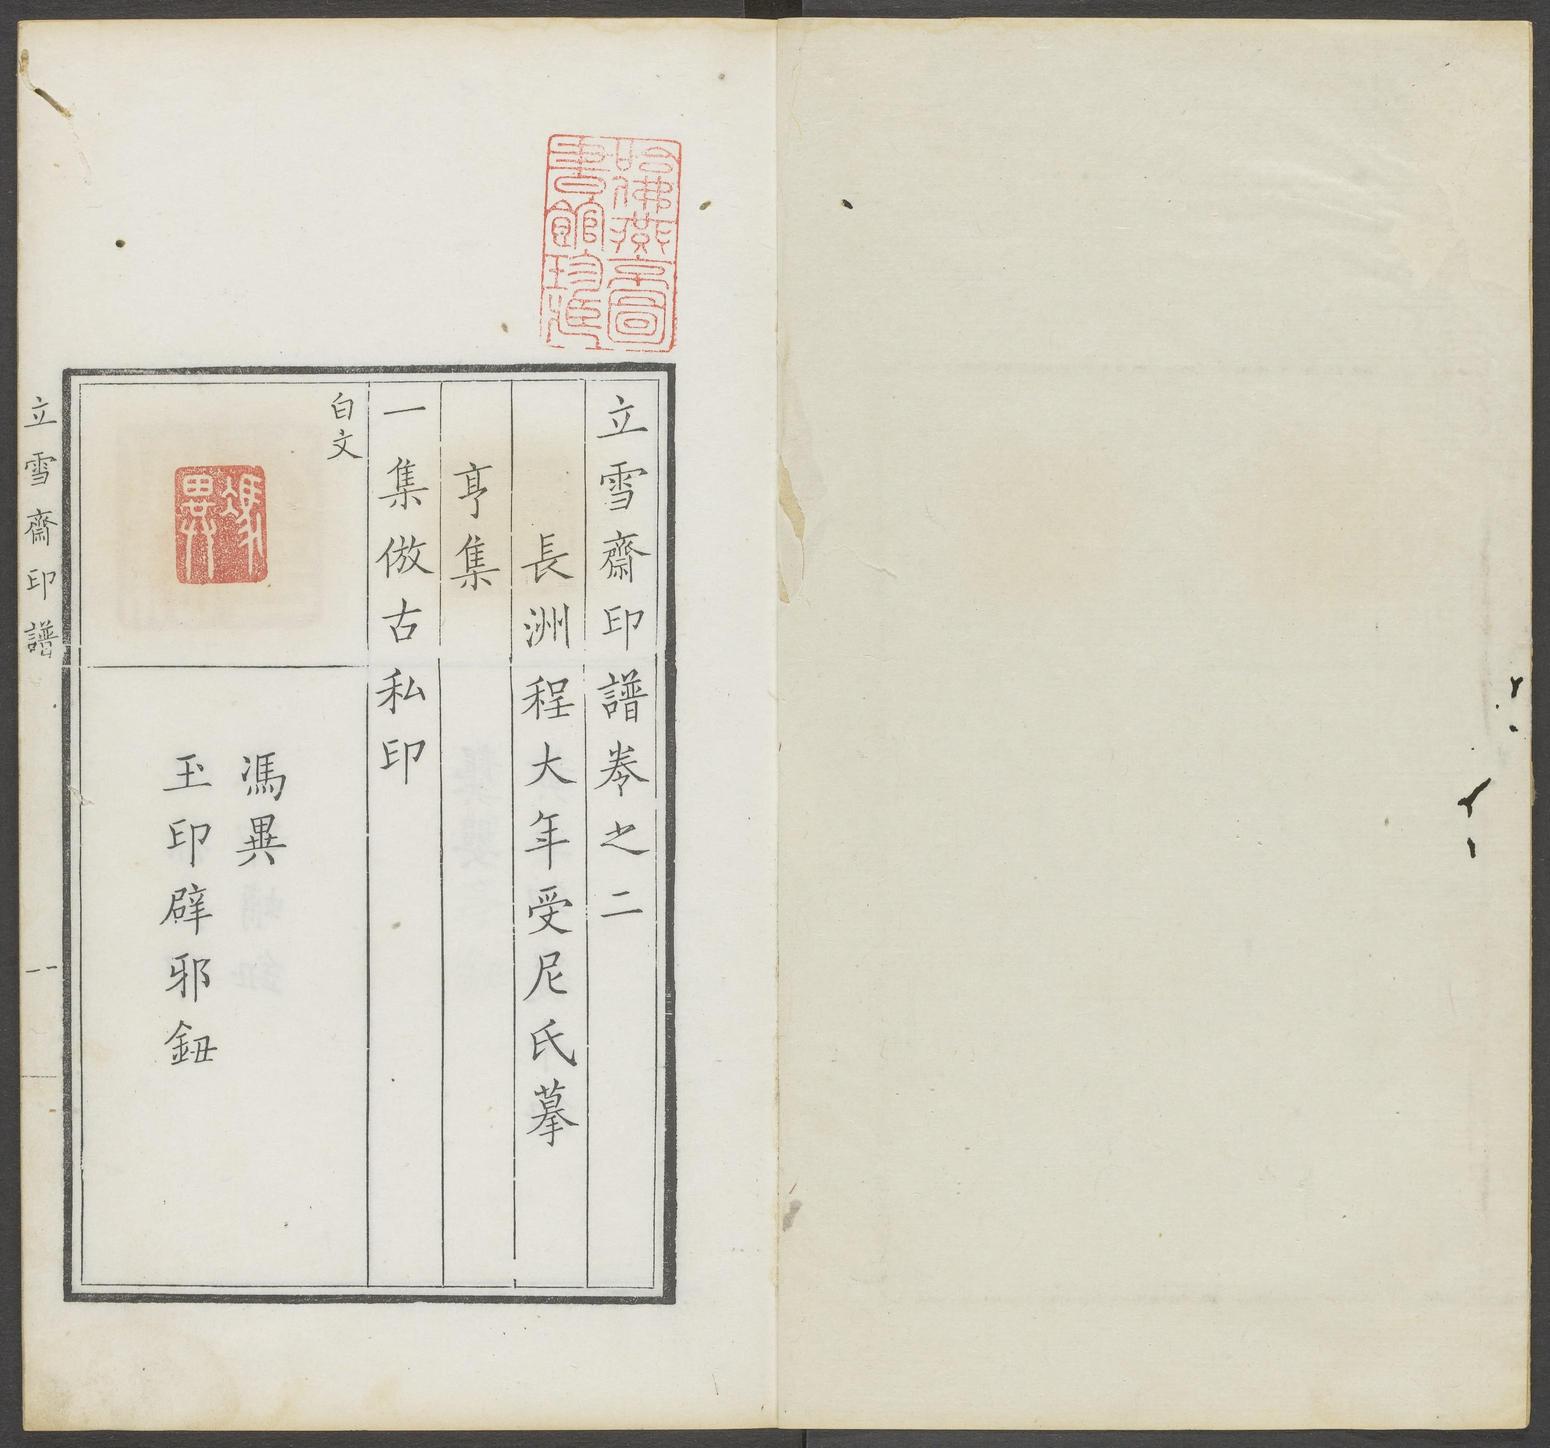 哈佛燕京圖
書館珍藏
立雪齋印譜卷之二
長洲程大年受尼氏摹
亨集
一集倣古私印
白文
馮異
馮異
玉印辟邪鈕
立雪齋印譜
一